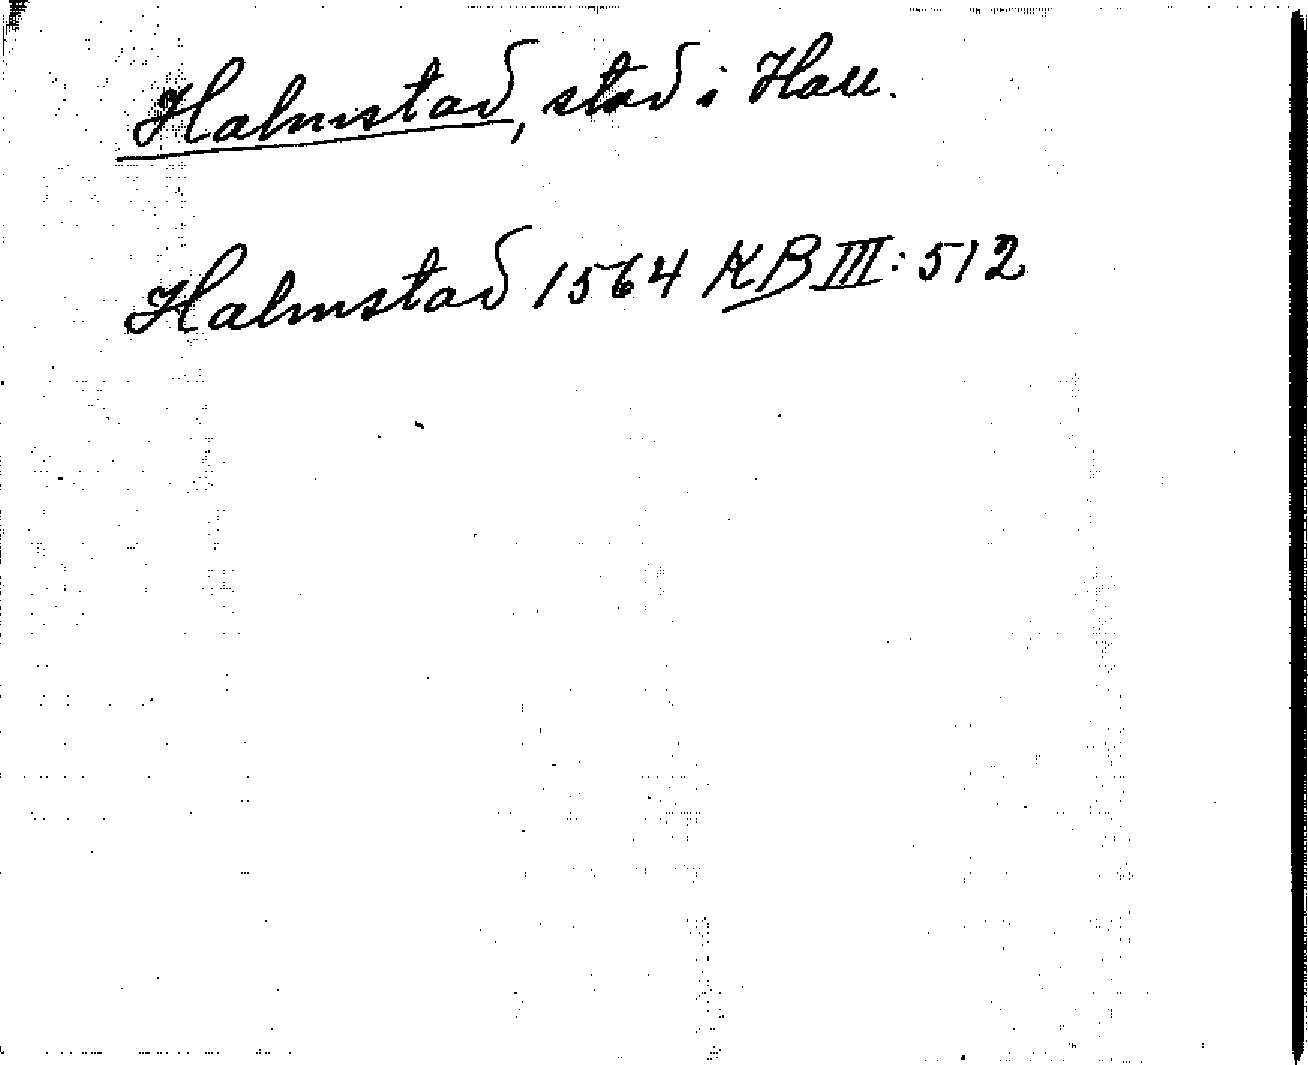 Halmstad, stad i Hall.
Halmstad 1564 KB III: 512